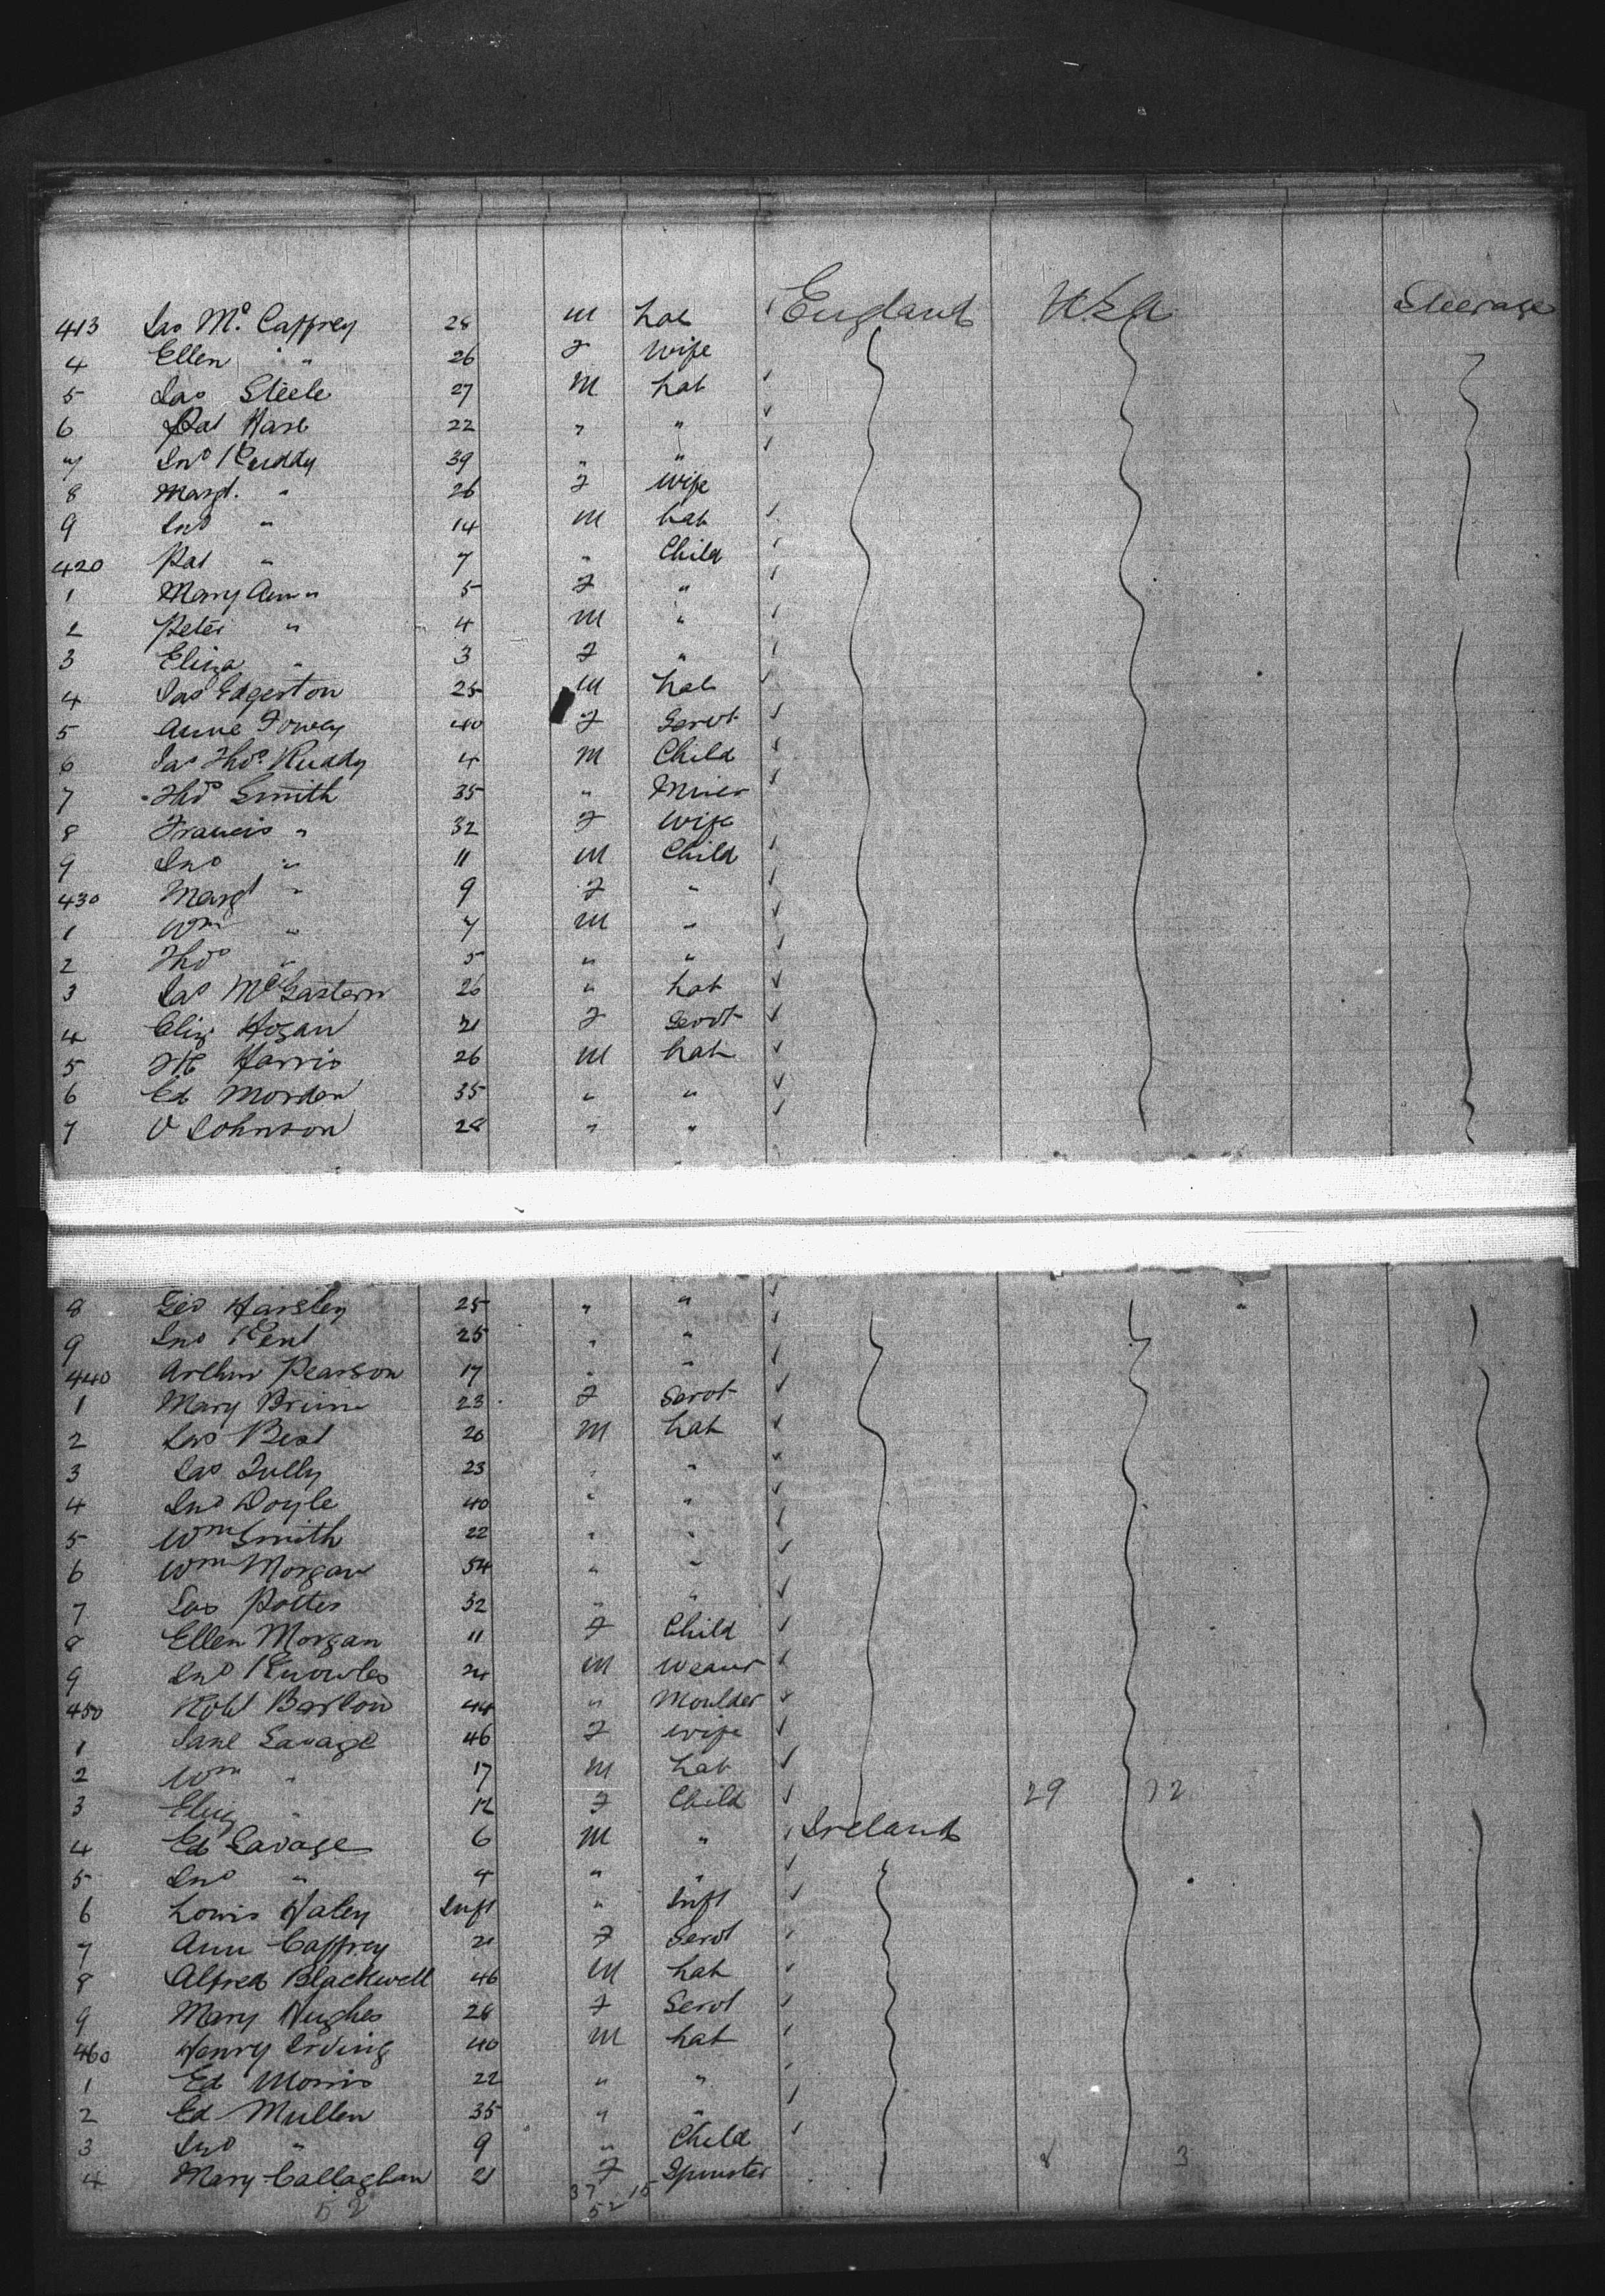 413 Jas Mc Caffrey 28 M Lab England USA Steerage
4 Ellen " " 26 F Wife
5 Jas Steele 27 M Lab
6 Pat Hare 22 " "
7 Jno Ruddy 39 " "
8 Margt. " 26 F Wife
9 Jno " 14 M Lab
420 Pat " 7 " Child
1 Mary Ann " 5 F "
2 Peter " 4 M "
3 Eliza " 3 F "
4 Jas Edgerton 25 M Lab
5 Anne 40 F Servt
6 Jas Thos Ruddy 4 M Child
7 Thos Smith 35 " Miner
8 Francis " 32 F Wife
9 Jno " 11 M Child
430 Margt " 9 F "
1 Wm " 7 M "
2 Thos " 5 " "
3 Jas 26 " Lab
4 Eliz Hogan 21 F Servt
5 Harris 26 M Lab
6 Ed Morden 35 " "
7 Johnson 28 " "
8 Geo Harsley 25 " "
9 Jno Kent 25 " "
440 Arthur Pearson 17 " "
1 Mary 23 F Servt
2 Jas Best 20 M Lab
3 Jas 23 " "
4 Jno Doyle 40 " "
5 Wm Smith 22 " "
6 Wm Morgan 54 " "
7 Jas Potter 32 " "
8 Ellen Morgan 11 F Child
9 Jno Knowles 24 M Weaver
450 Robt Barlow 44 " Moulder
1 Jane Savage 46 F Wife
2 Wm " 17 M Lab
3 Eliz " 12 F Child 29 12
4 Ed Savage 6 M " Ireland
5 Jno " 4 " "
6 Louis Haley Inft " Inft
7 Ann Caffrey 21 F Servt
8 Alfred Blackwell 46 M Lab
9 Mary Hughes 28 F Servt
460 Henry Irving 40 M Lab
1 Ed Morris 22 " "
2 Ed Mullen 35 " "
3 Jno " 9 " Child 8 3
4 Mary Callaghan 21 F Spinster
37 15
52 52